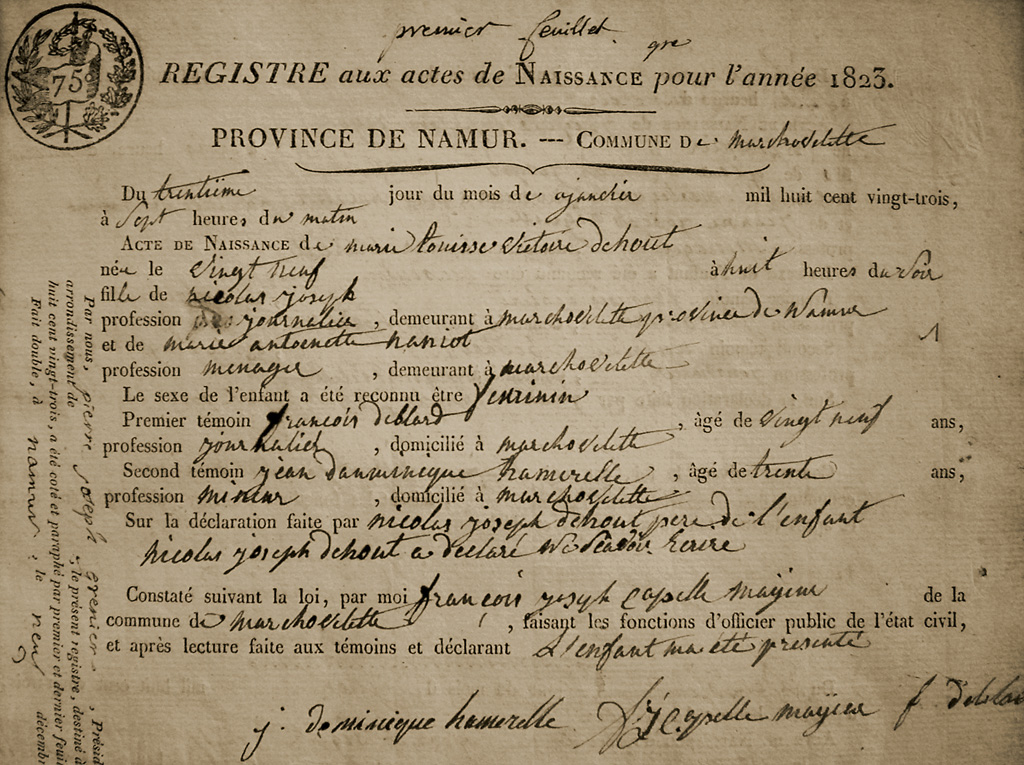 premier feuillet. gre
75
REGISTRE aux actes de NAISSANCE pour l'année 1823.
PROVINCE DE NAMUR. --- COMMUNE De marchovelette
Du trentiême jour du mois de ajanvier mil huit cent vingt-trois,
à sept heures du matin
ACTE DE NAISSANCE de marie louisse victoire dehout
née le vingt neuf à huit heures du soir
fille de nicolas joseph
profession journalier, demeurant à marchovelette province de Namur
et de marie antoinette haniot 1
profession menager, demeurant à marchovelette
Le sexe de l'enfant a été reconnu être feminin
Premier témoin francois deblard, âgé de vingt neuf ans,
profession journalier, domicilié à marchovelette
Second témoin jean damminique hamerelle, âgé de trente ans,
profession mineur, domicilié à marchovelette
Sur la déclaration faite par nicolas joseph dehout pere de l'enfant
nicolas joseph dehout a declaré ne scavoir Ecrire
Constaté suivant la loi, par moi françois joseph capelle mayeur de la
commune de marchovelette, faisant les fonctions d'officier public de l'état civil,
et après lecture faite aux témoins et déclarant l'enfant ma eté presenté
j. dominique hamerelle capelle mayeur f deblar
Par nous, pierre joseph grenier, Présid
arrondissement de , le présent registre, destiné à
huit cent vingt-trois, a été coté et paraphé par premier et dernier feuil
Fait double, à namur, le neuf décembr